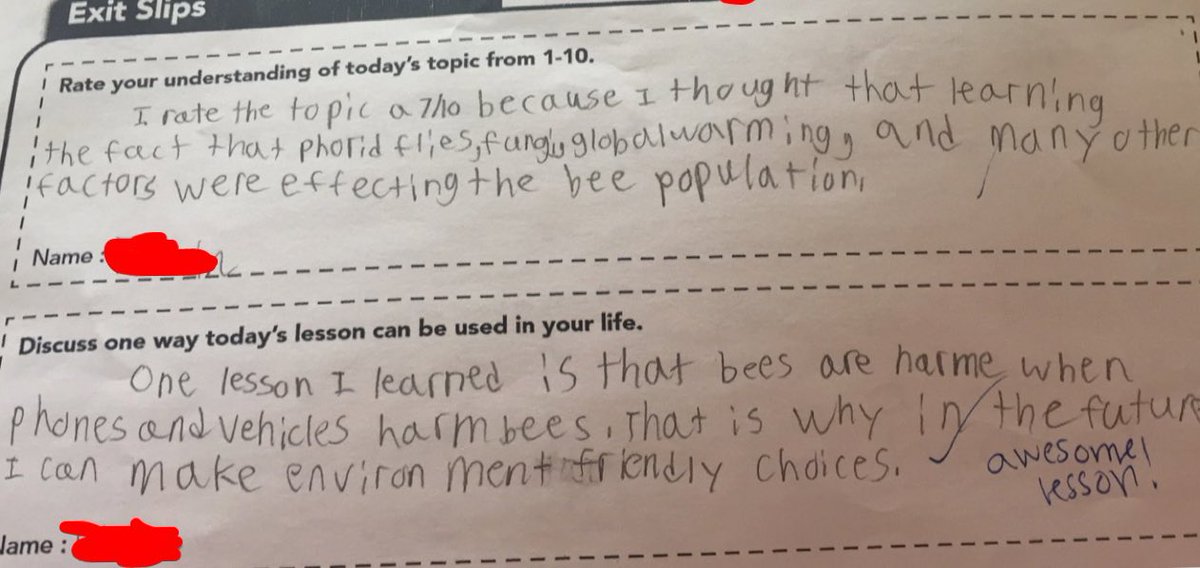 Exit Slips
Rate your understanding of today's topic from 1-10.
I rate the topic a 7/10 because I thought that learning
the fact that phorid flies, fungi, global warming, and many other
factors were effecting the bee population.
Name :
Discuss one way today's lesson can be used in your life.
One lesson I learned is that bees are harme when
phones and vehicles harm bees. That is why in the future
I can make environment friendly choices.
awesome!
lesson.
Name :